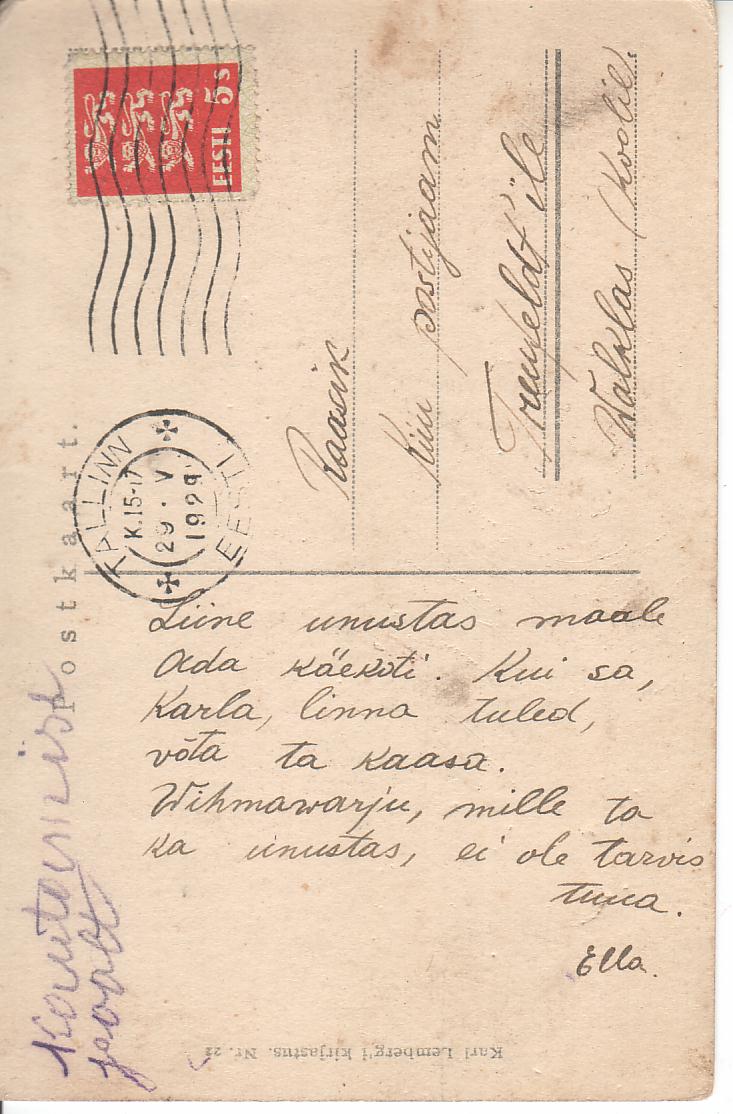 EESTI 5 S
TALLINN
K.15-17
29. V
1929
EESTI
Postkaart.
Raasik
Kiiu postijaam
Treufeldt'ile
Walklas (Kodil)
Liine unustas maale
Ada käekoti. Kui sa,
Karla, linna tuled,
võta ta kaasa.
Wihmawarju, mille ta
ka unustas, ei ole tarvis
tuua.
Ella.
Karl Lemberg'i kirjastus. Nr. 22